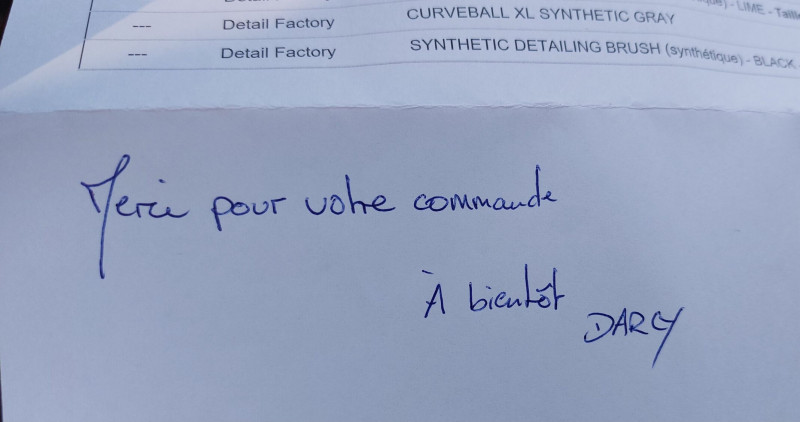 --- Detail Factory CURVEBALL XL SYNTHETIC GRAY
--- Detail Factory SYNTHETIC DETAILING BRUSH (synthétique) - BLACK -
- LIME - Taille
Merci pour votre commande
À bientôt
DARCY